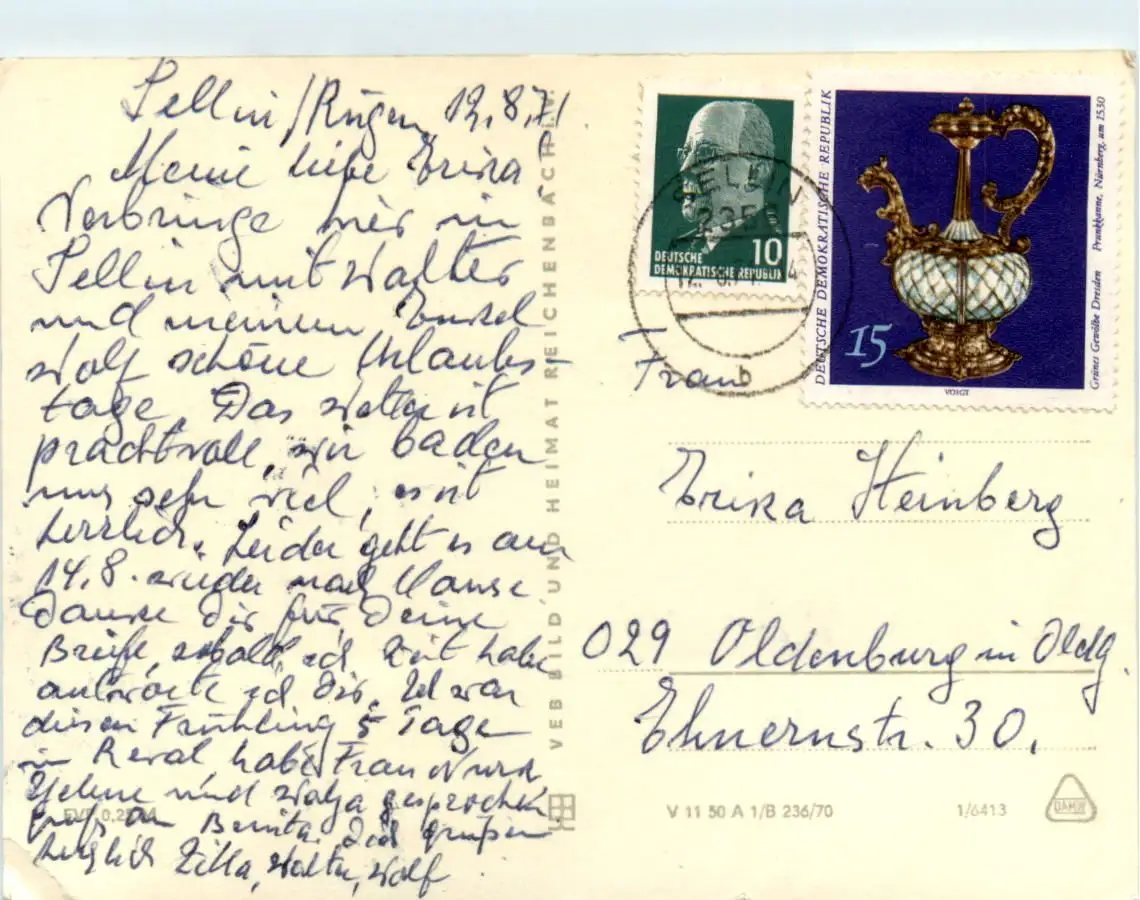 Sellin/Rügen, 12.8.71
Meine liebe Erika
Verbringe hier in
Sellin mit Walter
und meinem Enkel
Wolf schöne Urlaubs-
tage. Das Wetter ist
prachtvoll, wir baden
uns sehr viel, es ist
herrlich. Leider geht es am
14.8. wieder nach Hause
Danke Dir für Deine
Briefe, sobald ich Zeit habe
antworte ich Dir. Ich war
diesen Frühling 5 Tage
in Reval, habe Frau
und Walja gesprochen.
Gruß an Benita. Dich grüßen
herzlich Zilla, Walter, Wolf
EVP 0,20
VEB BILD UND HEIMAT REICHENBACH I. V.
DEUTSCHE
DEMOKRATISCHE REPUBLIK
10
SELLIN
2356
b
DEUTSCHE DEMOKRATISCHE REPUBLIK
15
VOIGT
Grünes Gewölbe Dresden Prunkkanne, Nürnberg, um 1530
Frau
Erika Heinberg
029 Oldenburg in Oldg.
Ehnernstr. 30.
V 11 50 A 1/B 236/70
1/6413